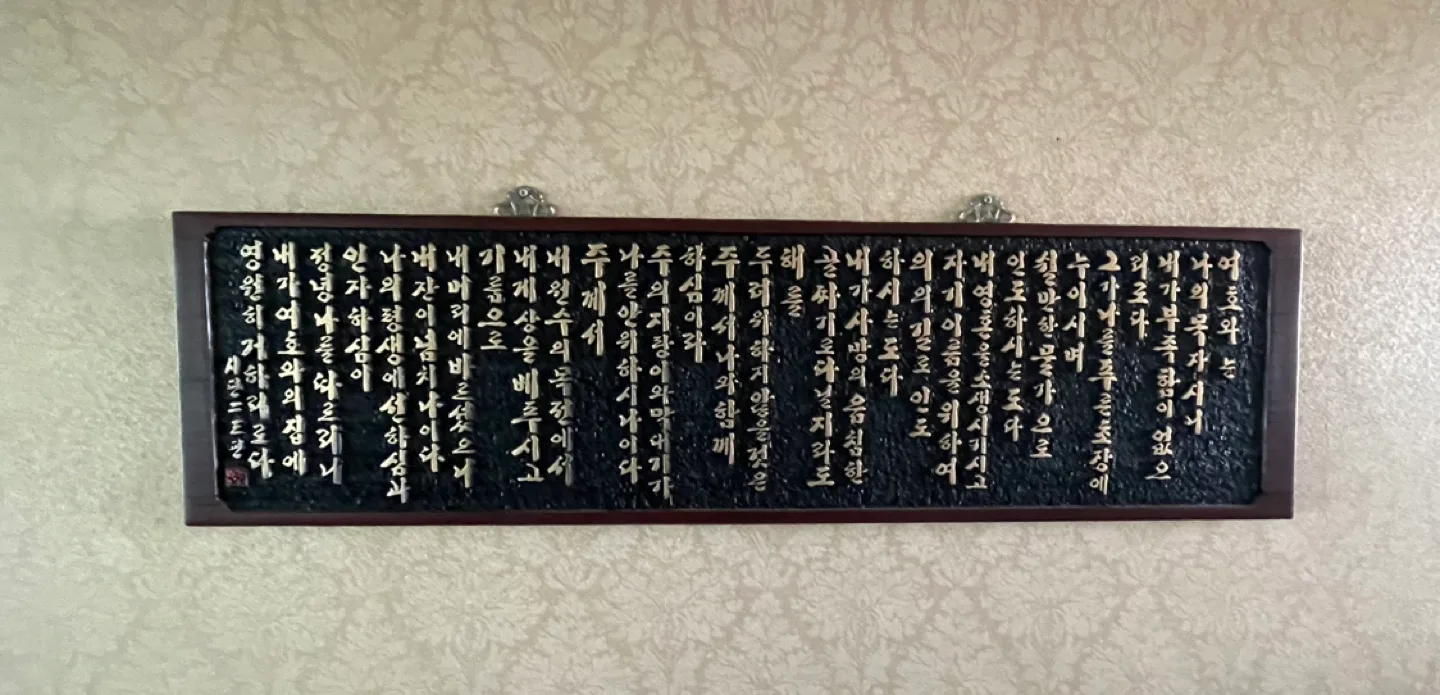 여호와는
나의 목자시니
내가 부족함이 없으
리로다
그가 나를 푸른 초장에
누이시며
쉴만한 물가으로
인도하시는도다
내 영혼을 소생시키시고
자기 이름을 위하여
의의 길로 인도
하시는도다
내가 사망의 음침한
골짜기로 다닐지라도
해를
두려워하지 않을 것은
주께서 나와 함께
하심이라
주의 지팡이와 막대기가
나를 안위하시나이다
주께서
내 원수의 목전에서
내게 상을 베푸시고
기름으로
내 머리에 바르셨으니
내 잔이 넘치나이다
나의 평생에 선하심과
인자하심이
정녕 나를 따르리니
내가 여호와의 집에
영원히 거하리로다